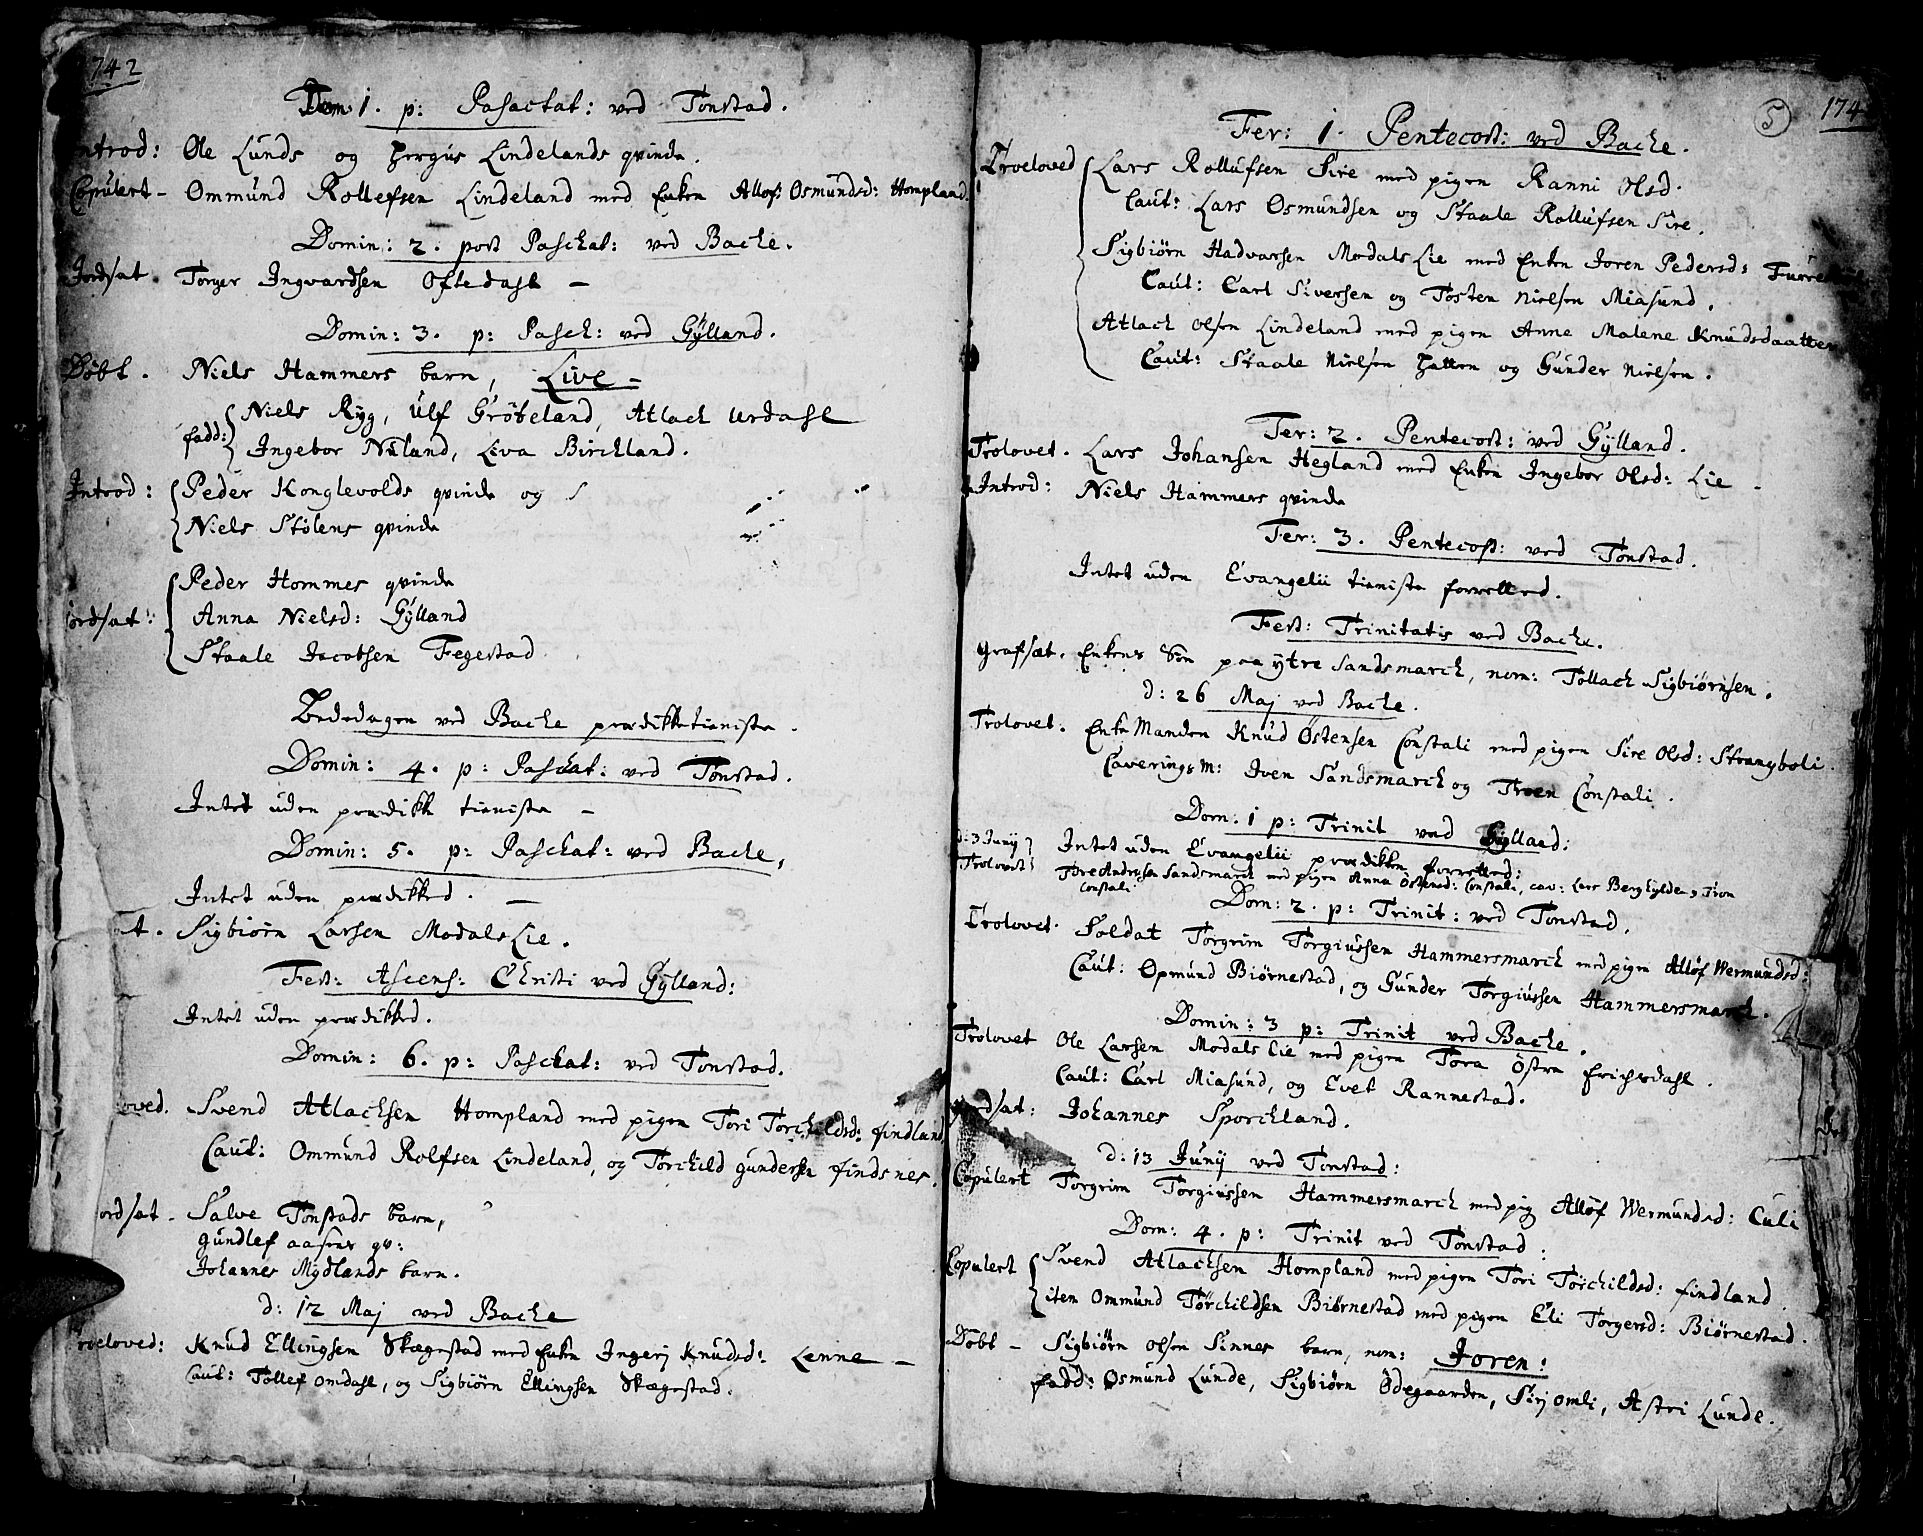 742
Dom 1. p: Pasactat: ved Tonstad.
ntrod: Ole Lunds og Lindelands qvinde.
Copulert - Ommund Rollefsen Lindeland med Enken Allof: Osmundsd: Hompland.
Domin: 2. post Paschat: ved Bache.
Jordsat. Torger Ingvardsen Oftedahl -
Domin: 3. p: Pasch: ved Gylland.
Døbt. Niels Hammers barn, Live -
fadd: Niels Ryg, Ulf Grøteland, Atlach Urdahl
Ingebor Nuland, Liva Birchland.
Introd: Peder Konglevolds qvinde og
Niels Stølens qvinde
Peder Hommes qvinde
ordsat: Anna Nielsd: Gylland
Staale Jacobsen Fegestad
Bededagen ved Bache prædikketieniste.
Domin: 4. p: Paschat: ved Tonstad.
Intet uden prædikke tieniste -
Domin: 5. p: Paschat: ved Bache,
Intet uden prædikked. -
t. Sigbiørn Larsen ModalsLie.
Fest: Ascens: Christi ved Gylland:
Intet uden prædikked.
Domin: 6. p: Paschat: ved Tonstad.
oved. Svend Atlachsen Hompland med pigen Tori Torchildsd: findland
Caut: Ommund Rolfsen Lindeland, og Torchild gundersen findsnes.
ordsat. Salve Tonstads barn,
gundlef aasens qv:
Johannes Mydlands barn.
d: 12 Maj ved Bache
roeloved: Knud Ellingsen Skegestad med Enke Ingerj Knudsd: Lenne -
Caut: Tollef omdahl, og Sigbiørn Ellingsen Skegestad.
5 174
Fer: 1. Pentecost: ved Bache.
Troeloved Lars Rollufsen Sire med pigen Ranni Olsd.
Caut: Lars Osmundsen og Staale Rollufsen Sire.
Sigbiørn Hadvarsen Modals Lie med Enken Joren Pedersd:
Caut: Carl Siversen og Tosten Nielsen Miasund.
Atlach olsen Lindeland med pigen Anne Malene Knudsdaatter
Caut: Staale Nielsen Hatten og Gunder Nielsen.
Fer: 2. Pentecost: ved Gylland.
Trolovet. Lars Johansen Hegland med Enken Ingebor Olsd: Lie -
Introd: Niels Hammers qvinde
Fer: 3. Pentecost: ved Tonstad.
Intet uden Evangelii tieniste forretted.
Fest: Trinitatis ved Bache.
Grafsæt. Enkens Søn paa ytre Sandsmarch, nom: Tollach Sigbiørnsen.
d: 26 Maj ved Bache.
Trolovet. Enke Manden Knud Østensen Constali med pigen Sire Olsd: Strangboli.
Caverings M: Iven Sandsmarch og Troen Constali.
Dom: 1 p: Trinit ved Gylland:
d: 3 Junij Intet uden Evangelii prædikken forretted:
Trolovet Tore Andersen Sandsmarch med pigen Anna Østensd: Constali, cav: Lars Berghylden, Tron
Constali
Dom: 2. p: Trinit: ved Tonstad.
Trolovet. Soldat Torgrim Torgiussen Hammersmarch med pigen Alløf Wermundsd:
Caut: Opmund Biørnestad, og Gunder Torgiussen Hammersmarch.
Domin: 3 p: Trinit ved Bache.
Trolovet Ole Larsen Modals Lie med pigen Tora Østre Erichsdahl.
Caut: Carl Miasund, og Evet Rannestad.
Jordsat: Johannes Sporchland.
d: 13 Junij ved Tonstad:
Copulert Torgrim Torgiussen Hammersmarch med pig Alløf Wermundsd: Culi
Dom: 4. p: Trinit ved Tonstad:
Copulert Svend Atlachsen Hompland med pigen Tori Torchildsd: findland.
item Ommund Torchildsen Biørnestad med pigen Eli Torgersd: Biørnestad.
Døbt - Sigbiørn olsen Sinnes barn, nom: Joren:
fadd: Osmund Lunde, Sigbiørn Ødegaarden, Sirj omli, Astri Lunde.